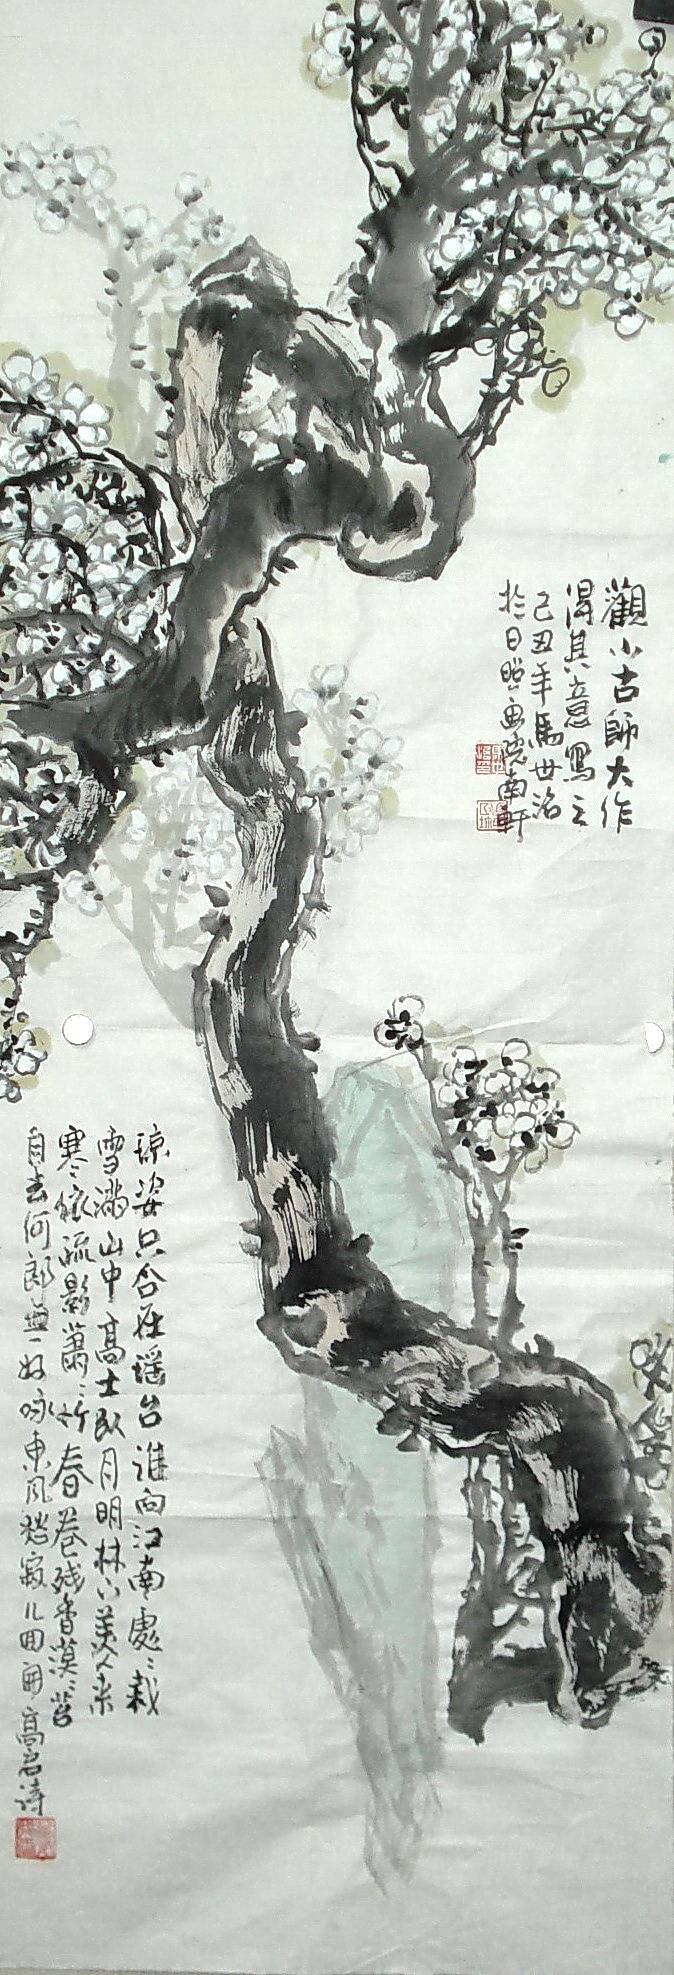 觀小古師大作
得其意寫之
己丑年馬世治
於日照畫院南軒
琼姿只合在瑶台誰向江南處処栽
雪滿山中高士臥月明林下美人来
寒依疏影蕭蕭竹春卷残香漠漠苔
自去何郎無好咏東風愁寂几回開高启诗